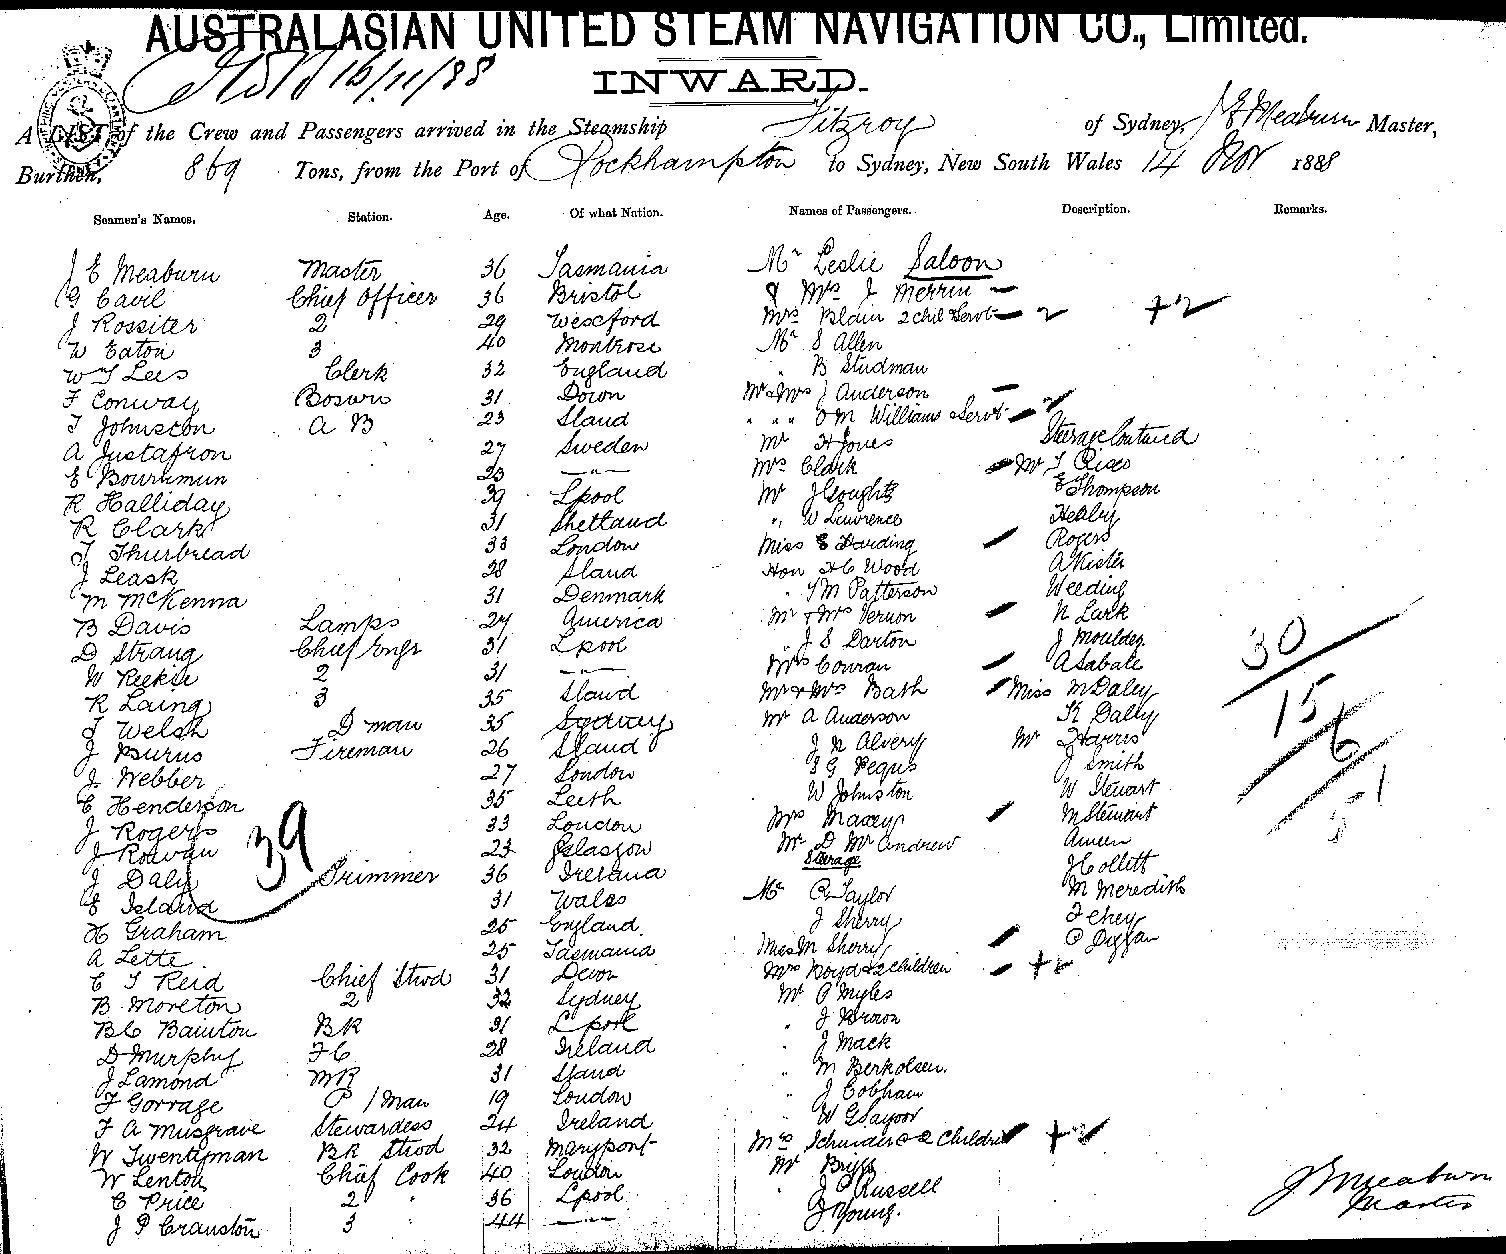 AUSTRALASIAN UNITED STEAM NAVIGATION CO., Limited.
16/11/88
INWARD.
A LIST of the Crew and Passengers arrived in the Steamship Fitzroy of Sydney, J E Meaburn Master,
Burthen, 869 Tons, from the Port of Rockhampton to Sydney, New South Wales 14 Nov 1888
Seamen's Names. Station. Age. Of what Nation. Names of Passengers. Description. Remarks.
J E Meaburn Master 36 Tasmania Mr Leslie Saloon
G Cavil Chief Officer 36 Bristol & Mrs J Merrin
J Rossiter 2 29 Wexford Mrs Blair 2 chil & Servt 2 +2
W Eaton 3 40 Montrose Mr S Allen
W T Lees Clerk 32 England " B Studman
F Conway Bosun 31 Down Mr & Mrs J Anderson
T Johnston A B 23 Sland " " " O M Williams & Servt 2
A Gustafson 27 Sweden Mr H Jones Steerage Contined
E Bourkman 23 — " — Mrs Clark Mr T Rises
R Halliday 39 Lpool Mr J Coughtz E Thompson
R Clark 31 Shetland " W Lawrence Healey
T Thurbread 33 London Miss E Harding Rogers
J Leask 28 Sland Hon H C Wood A Kister
M McKenna 31 Denmark " T M Patterson Weeding
B Davis Lamps 27 America Mr & Mrs Vernon N Lark
D Strang Chief Engr 31 Lpool " J S Darton J Moulden
W Reekie 2 31 — " — Mrs Conran A Sabate
R Laing 3 35 Sland Mr & Mrs Bath Miss M Daley
T Welsh D man 35 Sydney Mr A Anderson K Daley
J Burns Fireman 26 Sland J N Alvery Mr Harris
J Webber 27 London S G Pegus J Smith
C Henderson 35 Leith W Johnston W Stewart
J Rogers 33 London Mrs Macey M Stewart
J Rowan 23 Glasgow Mr D McAndrew Ameen
Steerage
J Daly Trimmer 36 Ireland J Collett
E Island 31 Wales Mr C Taylor M Meredith
H Graham 25 England. J Sherry Fehey
A Lette 25 Tasmania Miss M Sherry P Diggan
C T Reid Chief Stwd 31 Devon Mrs Boyd & 2 children +2
B Moreton 2 32 Sydney Mr P Myles
B C Bainton BK 31 Lpool " J Brown
D Murphy F C 28 Ireland " J Mack
J Lamond M R 31 Sland " M Berkolsen.
F Gorrage P / Man 19 London " J Cobham
F A Musgrave Stewardess 24 Ireland " W G
W Twentyman BK Stwd 32 Maryport Mrs & 2 Children +2
W Lenton Chief Cook 40 London Mr Briggs
C Price 2 " 36 Lpool " J P Russell
J P Cranston 3 44 — " — J Young.
39
30
15
6
51
J E Meaburn
Master